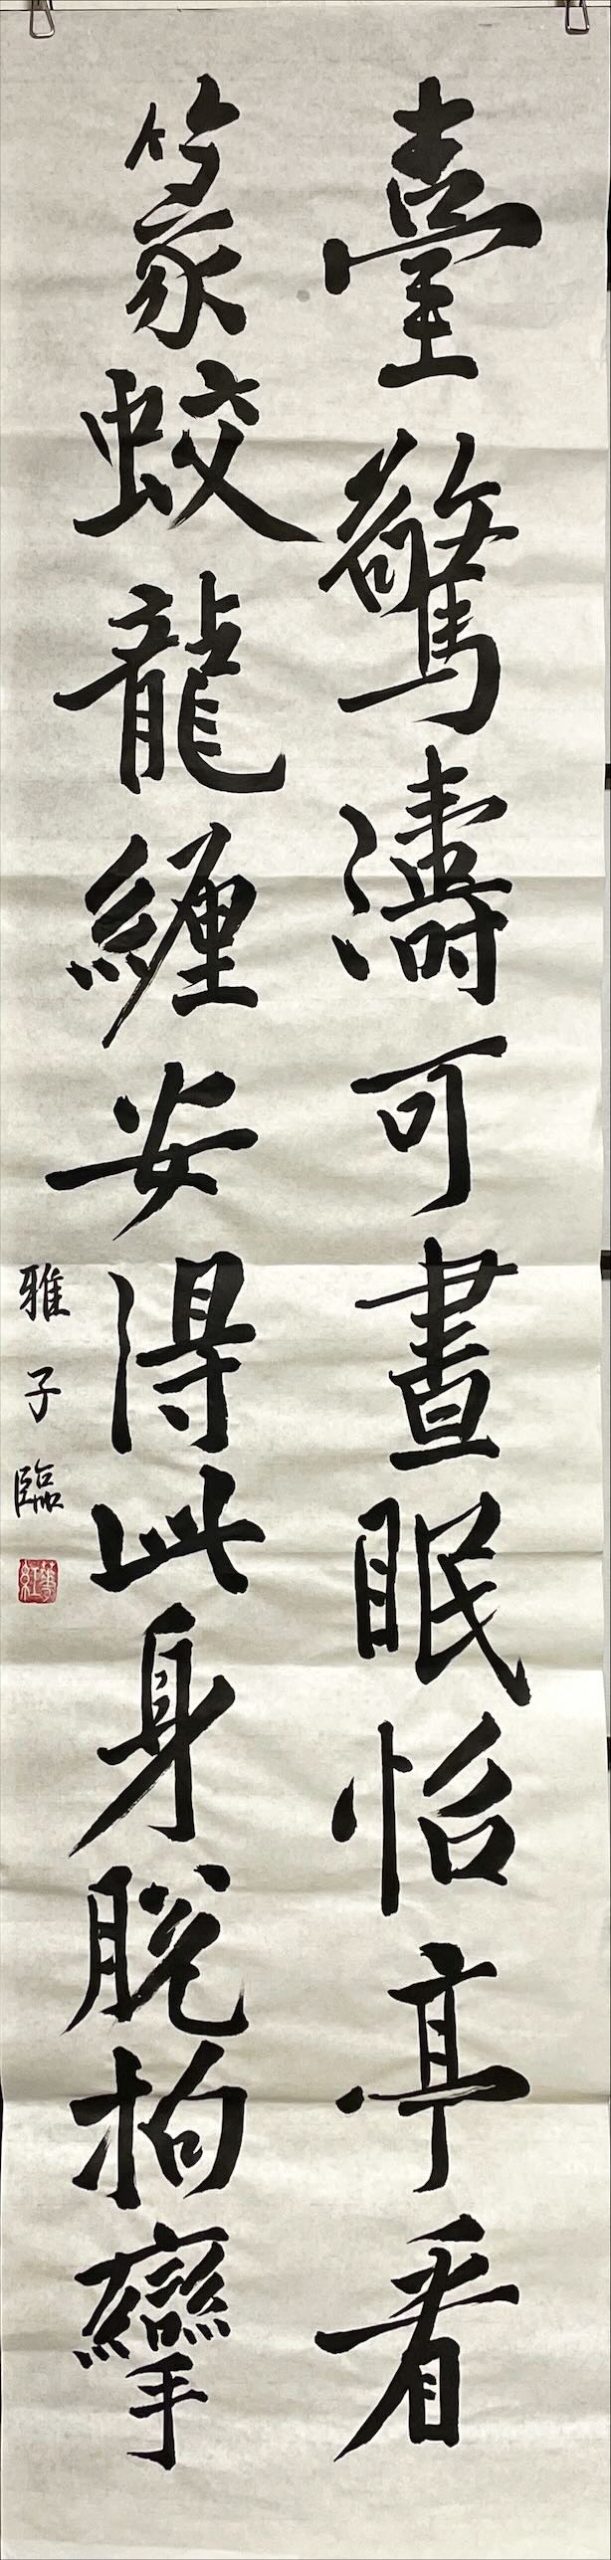 臺驚濤可晝眠怡亭看
篆蛟龍纏安得此身脫拘攣
雅子臨